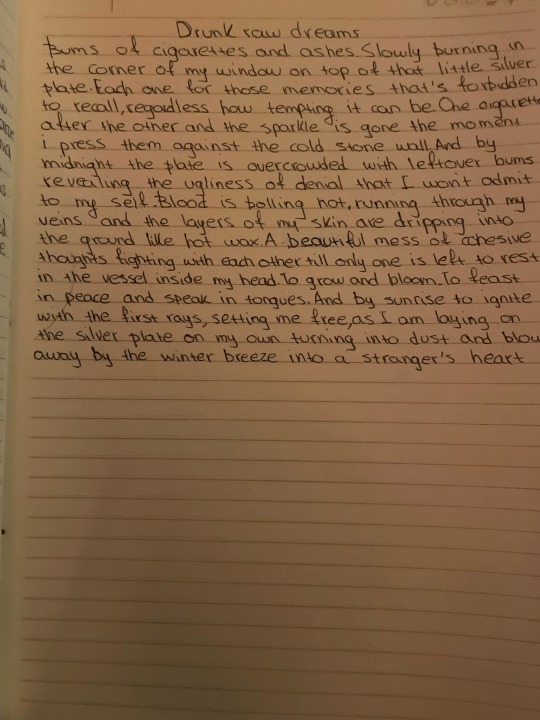 Drunk raw dreams
Bums of cigarettes and ashes. Slowly burning in
the corner of my window on top of that little silver
plate. Each one for those memories that's forbidden
to recall, regardless how tempting it can be. One cigarette
after the other and the sparkle is gone the moment
i press them against the cold stone wall. And by
midnight the plate is overcrowded with leftover bums
revealing the ugliness of denial that I won't admit
to my self. Blood is boiling hot, running through my
veins and the layers of my skin are dripping into
the ground like hot wax. A beautiful mess of cohesive
thoughts fighting with each other till only one is left to rest
in the vessel inside my head. To grow and bloom. To feast
in peace and speak in tongues. And by sunrise to ignite
with the first rays, setting me free, as I am laying on
the silver plate on my own turning into dust and blow
away by the winter breeze into a stranger's heart